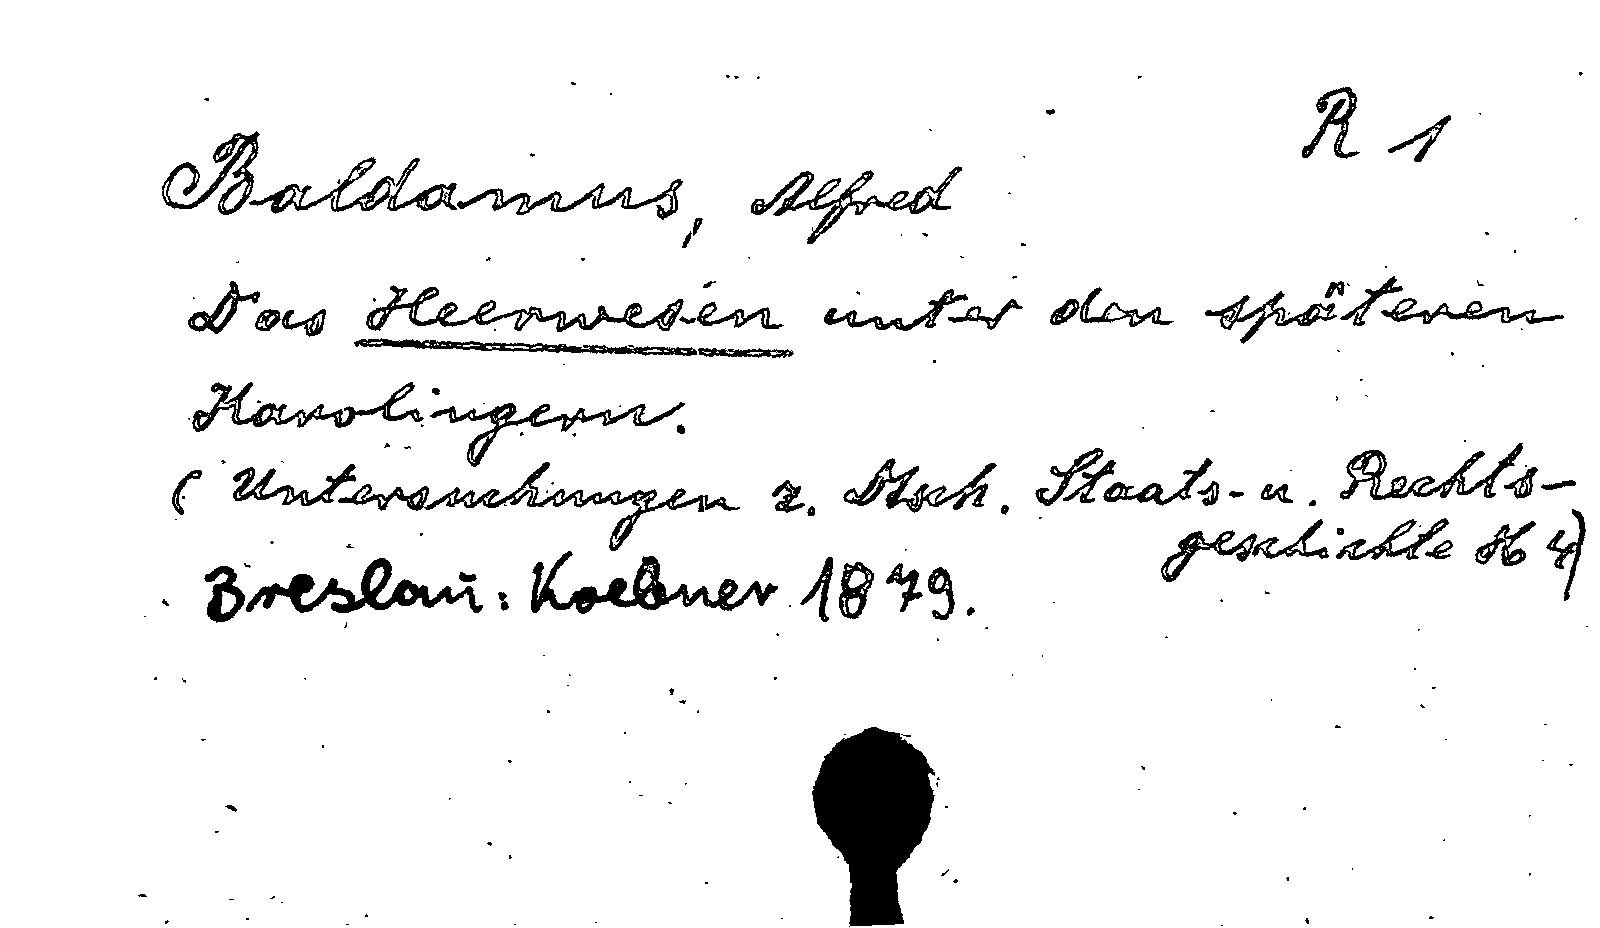 R 1
Baldamus, Alfred
Das Heerwesen unter den späteren
Karolingern.
(Untersuchungen z. Dtsch. Staats- u. Rechts-
geschichte H 4)
Breslau: Koebner 1879.